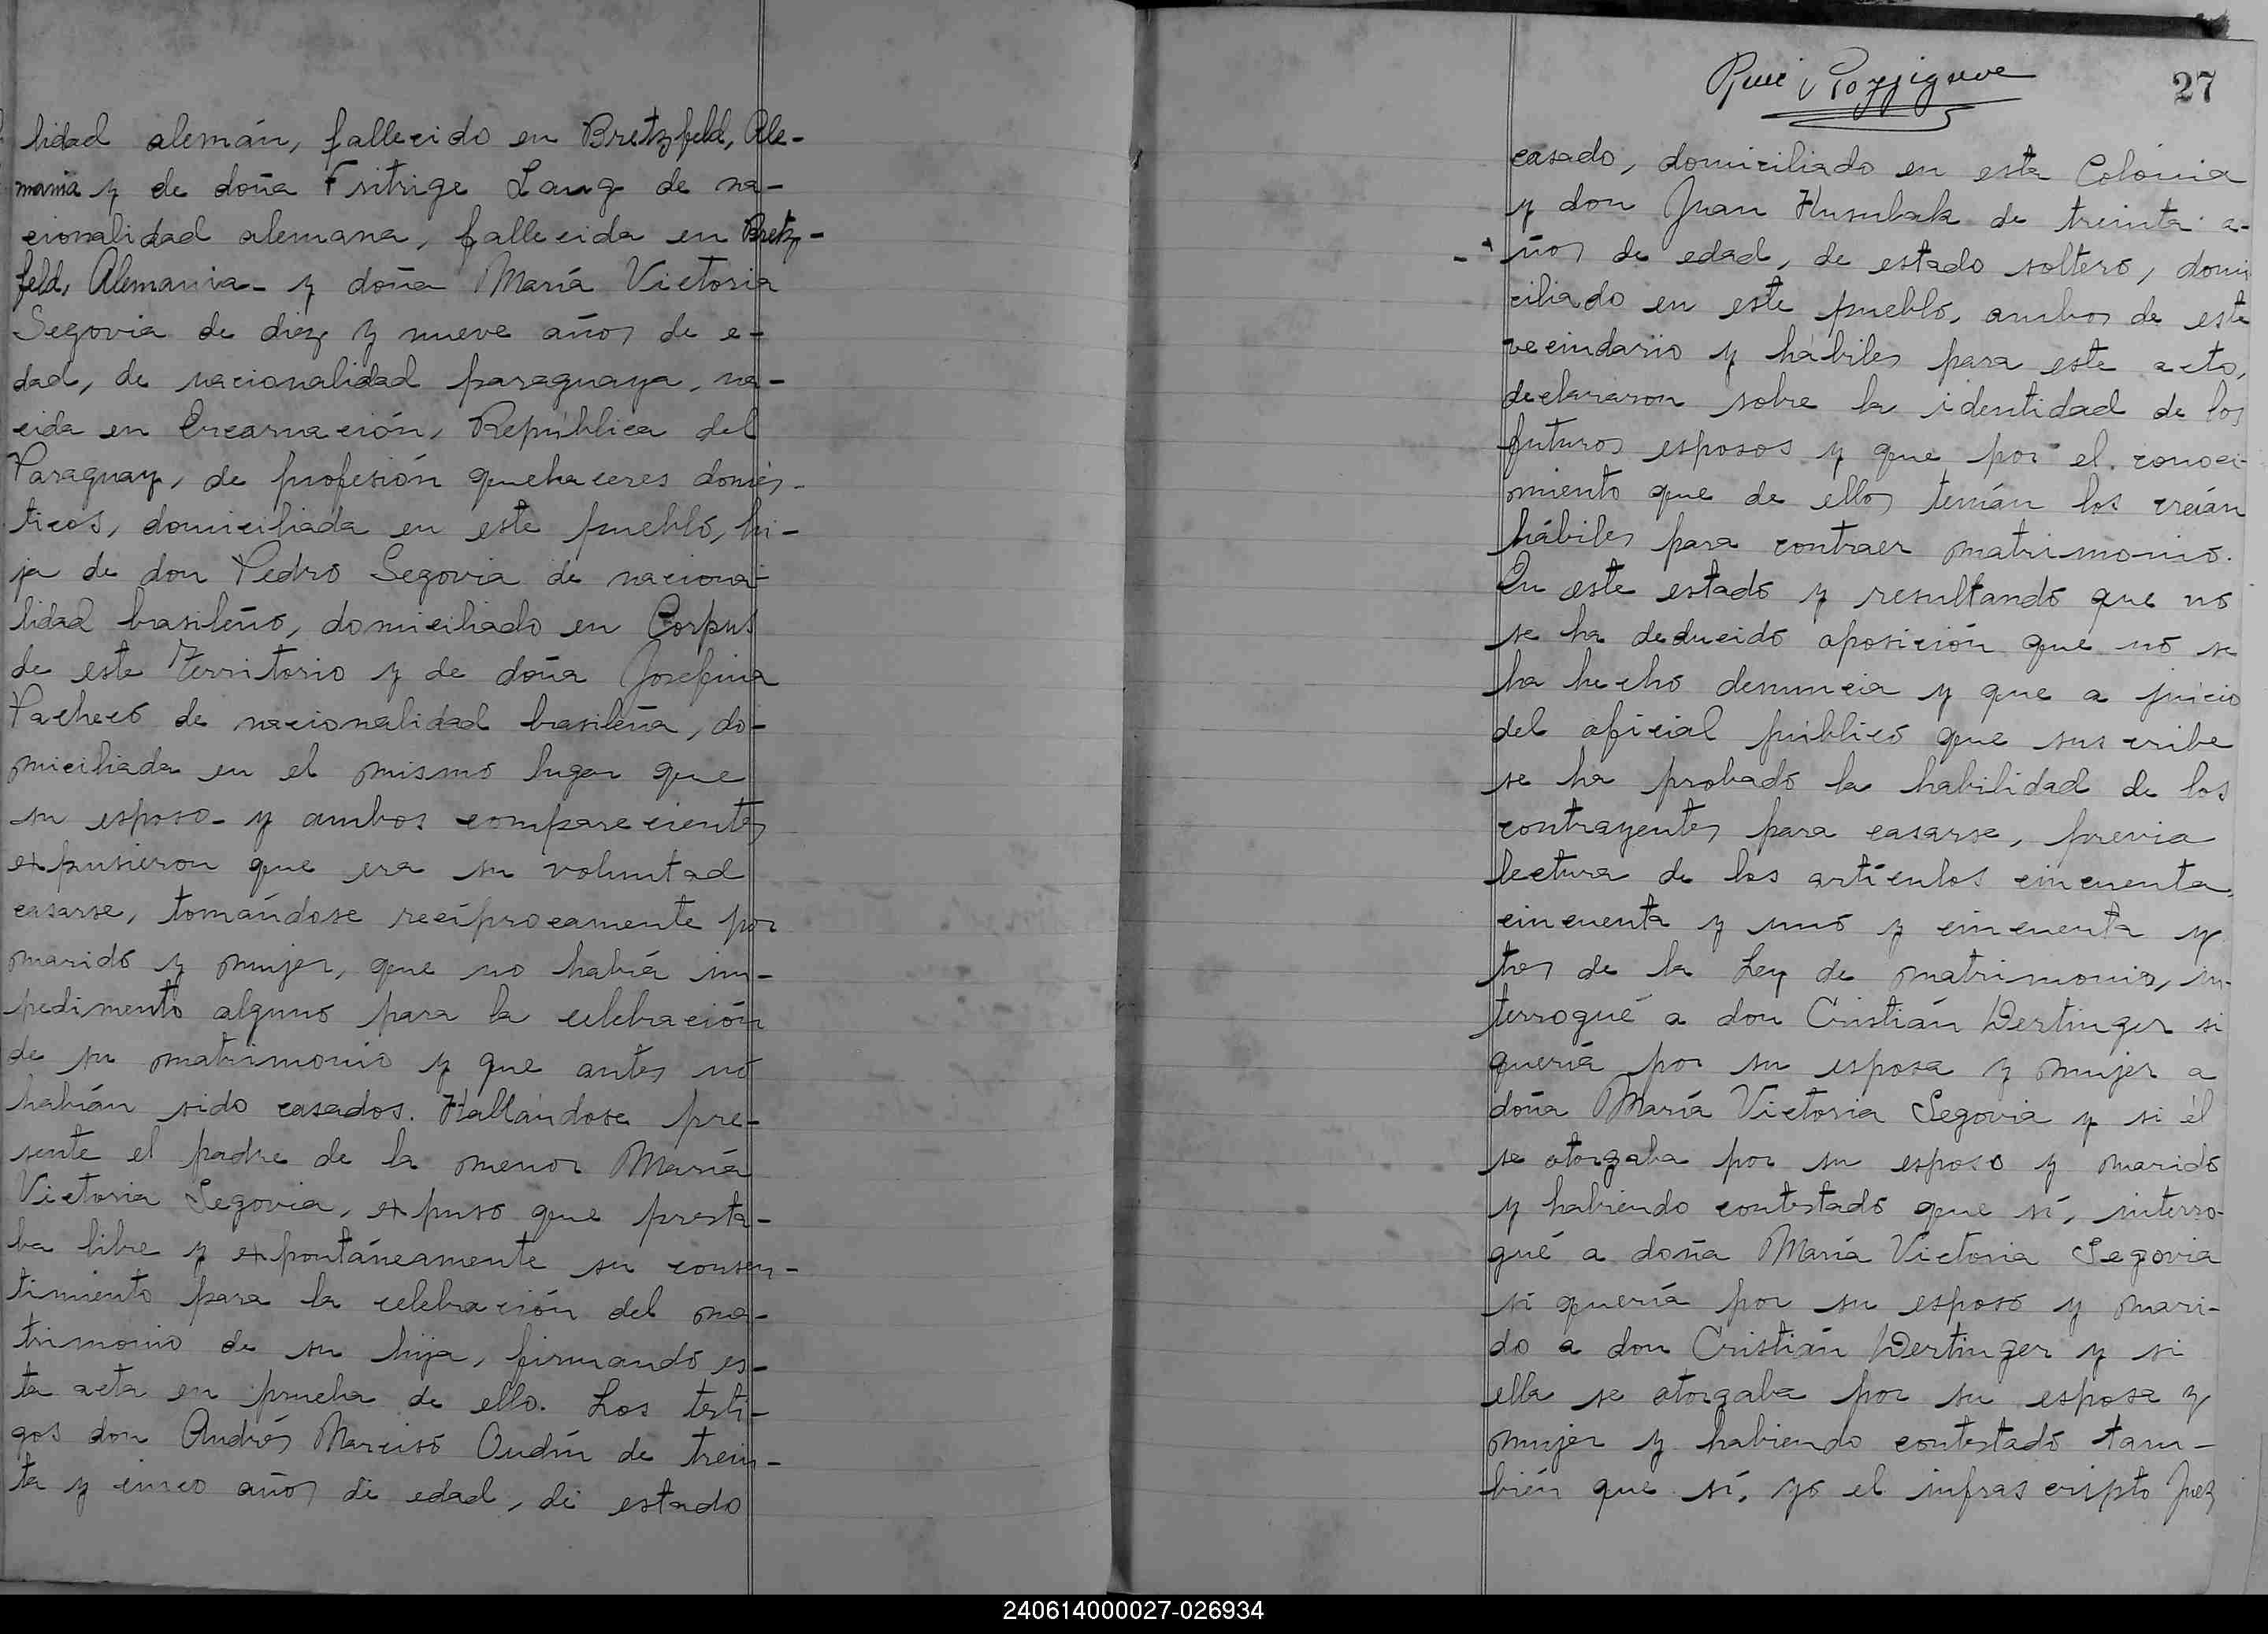 lidad alemán, fallecido en Bretzfeld, Ale-
mania y de doña Fritrige Laug de na-
cionalidad alemana, fallecida en Bretz-
feld, Alemania- y doña María Victoria
Segovia de diez y nueve años de e-
dad, de nacionalidad paraguaya, na-
cida en Encarnación, República del
Paraguay, de profesión quehaceres domés-
ticos, domiciliada en este pueblo, hi-
ja de don Pedro Segovia de naciona-
lidad brasileño, domiciliado en Corpus
de este Territorio y de doña Josefina
Pacheco de nacionalidad brasileña, do-
miciliada en el mismo lugar que
su esposo- y ambos comparecientes
expusieron que era su voluntad
casarse, tomándose recíprocamente por
marido y mujer, que no había im-
pedimento alguno para la celebración
de su matrimonio y que antes no
habían sido casados. Hallándose pre-
sente el padre de la menor María
Victoria Segovia, expuso que presta-
ba libre y expontáneamente su consen-
timiento para la celebración del ma-
trimonio de su hija, firmando es-
ta acta en prueba de ello. Los testi-
gos don Andrés Marciso Oudín de trein-
ta y cinco años de edad, de estado
27
casado, domiciliado en esta Colonia
y don Juan Husulak de treinta a-
ños de edad, de estado soltero, domi
ciliado en este pueblo, ambos de este
vecindario y hábiles para este acto,
declararon sobre la identidad de los
futuros esposos y que por el conoci-
miento que de ellos tenían los creían
hábiles para contraer matrimonio.
En este estado y resultando que no
se ha deducido oposición que no se
ha hecho denuncia y que a juicio
del oficial público que suscribe
se ha probado la habilidad de los
contrayentes para casarse, previa
lectura de los artículos cincuenta,
cincuenta y uno y cincuenta y
tres de la Ley de matrimonio, in-
terrogué a don Cristián Dertinger si
quería por su esposa y mujer a
doña María Victoria Segovia y si él
se otorgaba por su esposo y marido
y habiendo contestado que sí, interro-
gué a doña María Victoria Segovia
si quería por su esposo y mari-
do a don Cristián Dertinger y si
ella se otorgaba por su esposa y
mujer y habiendo contestado tam-
bién que sí, yo el infrascripto Juez
240614000027-026934